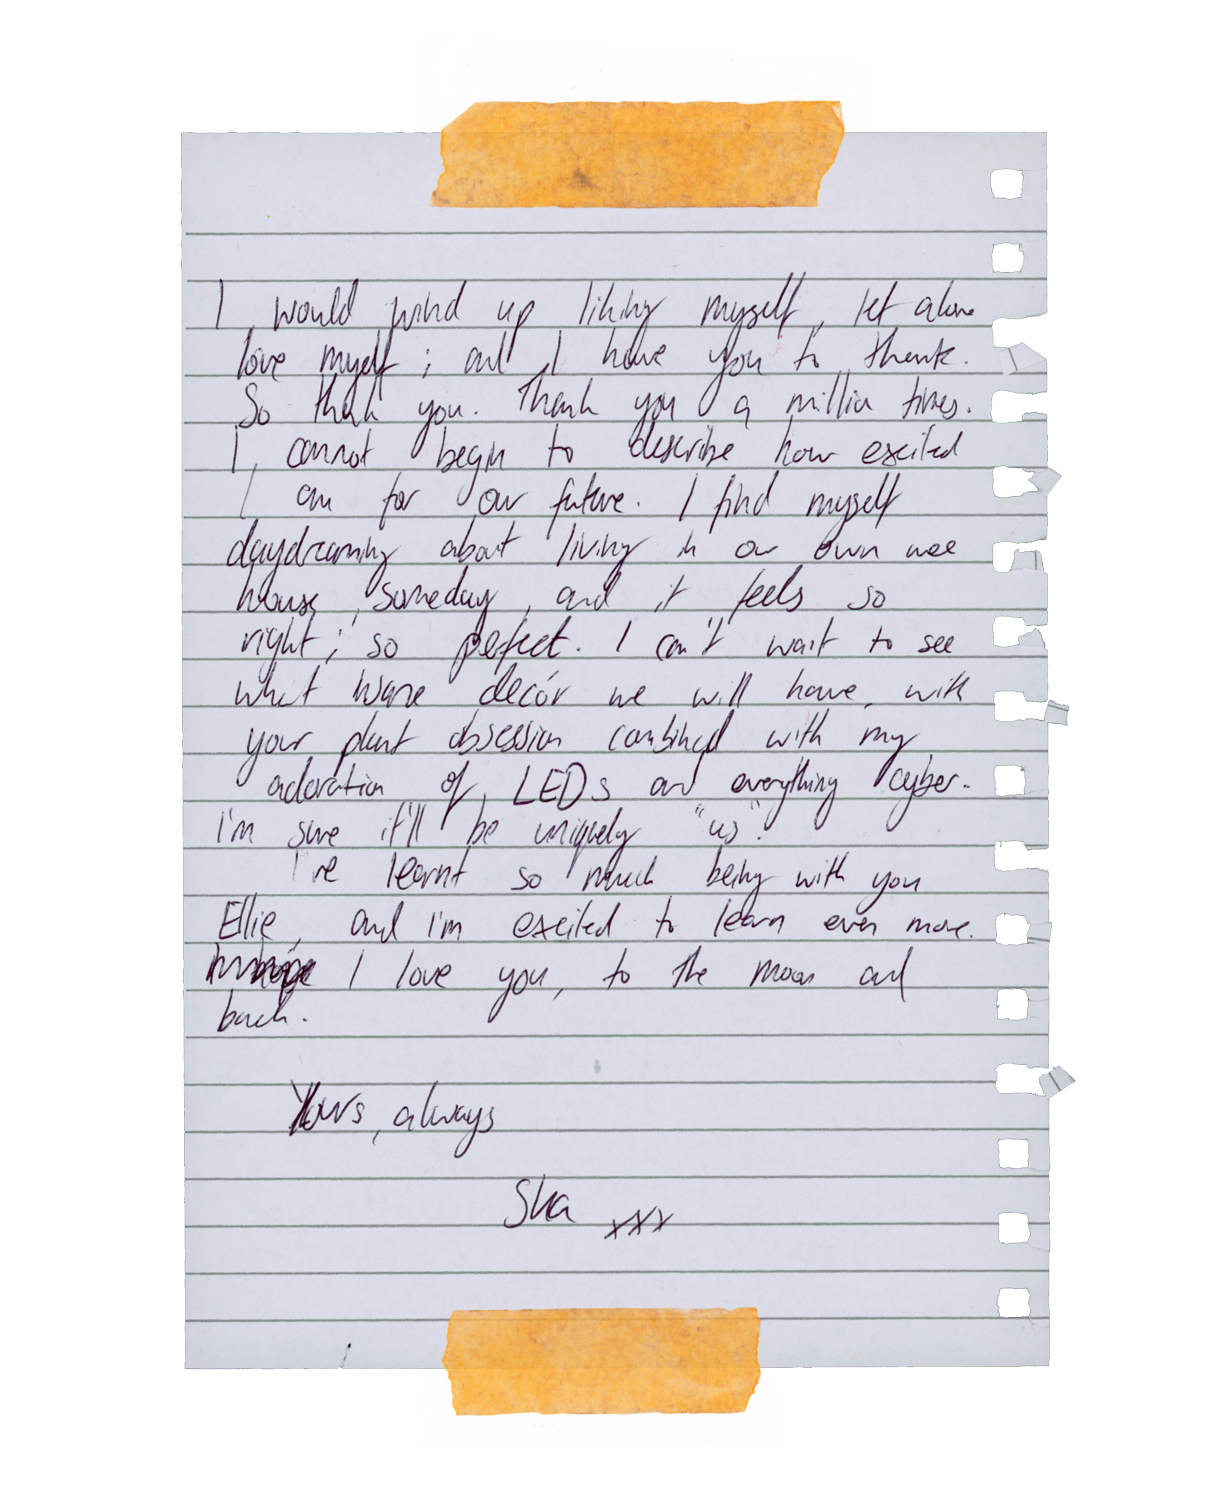 I would wind up liking myself, let alone
love myself; and I have you to thank.
So thank you. Thank you a million times.
I cannot begin to describe how excited
I am for our future. I find myself
daydreaming about living in our own wee
house, someday, and it feels so
right; so perfect. I can't wait to see
what decór we will have, with
your plant obsession combined with my
adoration of LEDs and everything cyber.
I'm sure it'll be uniquely "us".
I've learnt so much being with you
Ellie, and I'm excited to learn even more.
I love you, to the moon and
back.
Yours, always
xxx